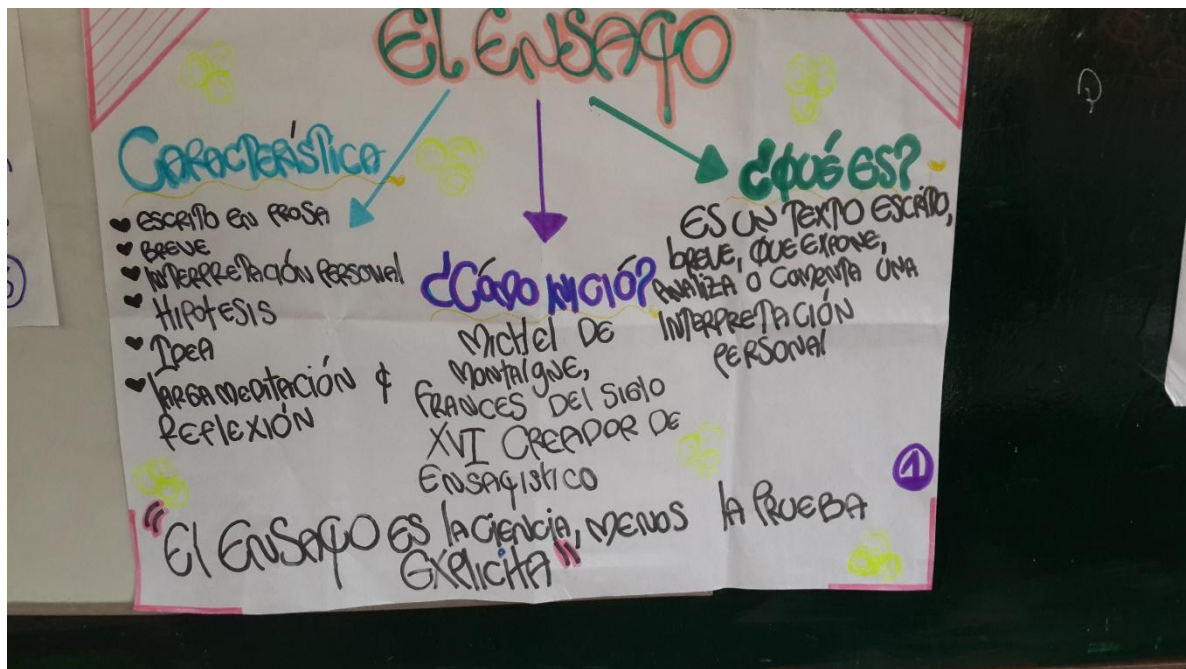 El ENSAYO
CARACTERÍSTICA
ESCRITO EN PROSA
BREVE
INTERPRETACIÓN PERSONAL
HIPOTESIS
IDEA
lARGA MEDITACIÓN Y
REFLEXIÓN
¿CÓMO INICIÓ?
MICHEl DE
MONTAIGNE,
FRANCES DEl SIGlO
XVI CREADOR DE
ENSAYISTICO
¿QUÉ ES?
ES UN TEXTO ESCRITO,
bREVE, QUE EXPONE,
ANAlIZA O COMENTA UNA
INTERPRETACIÓN
PERSONAl
1
"El ENSAYO ES lA CIENCIA, MENOS lA PRUEBA
EXPlICITA"